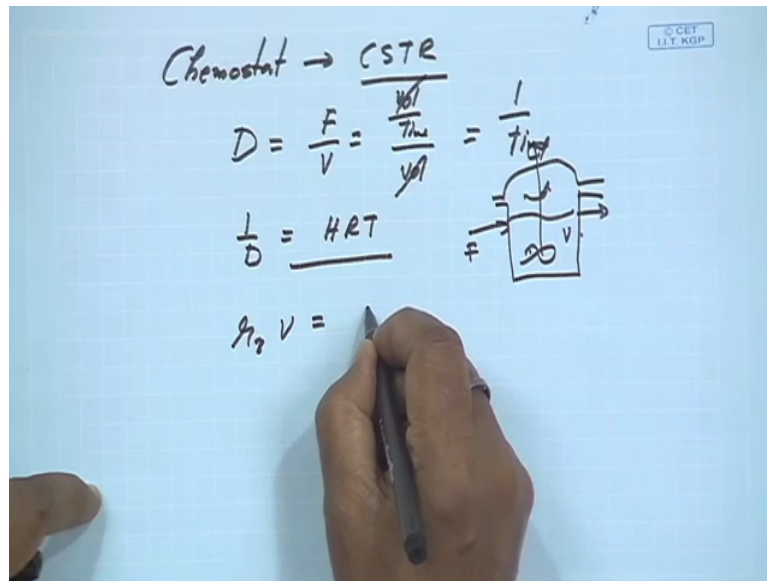 © CET
I.I.T. KGP
Chemostat → CSTR
D = F/V = (vol/Time)/vol = 1/time
1/D = HRT
F
V
r₂ V =